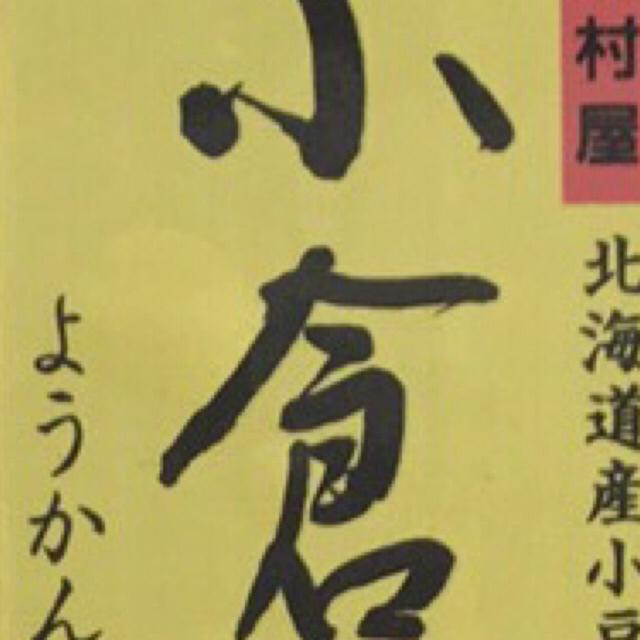 村屋
北海道産小豆
小倉
ようかん